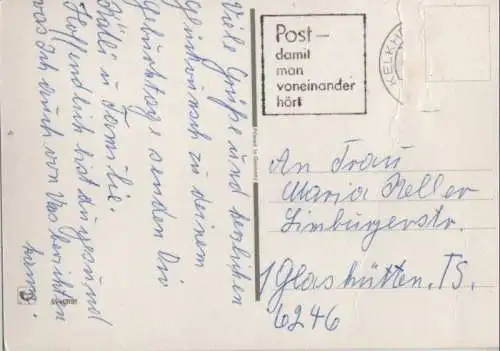 Viele Grüße und herzlichen
Glückwunsch zu deinem
Geburtstage senden Dir
Källi u Familie.
Hoffendlich bist du gesund
was ich auch von uns berichten
kann.
Post –
damit
man
voneinander
hört
KELKH
An Frau
Maria Keller
Limburgerstr.
Glashütten. TS.
6246
Printed in Germany